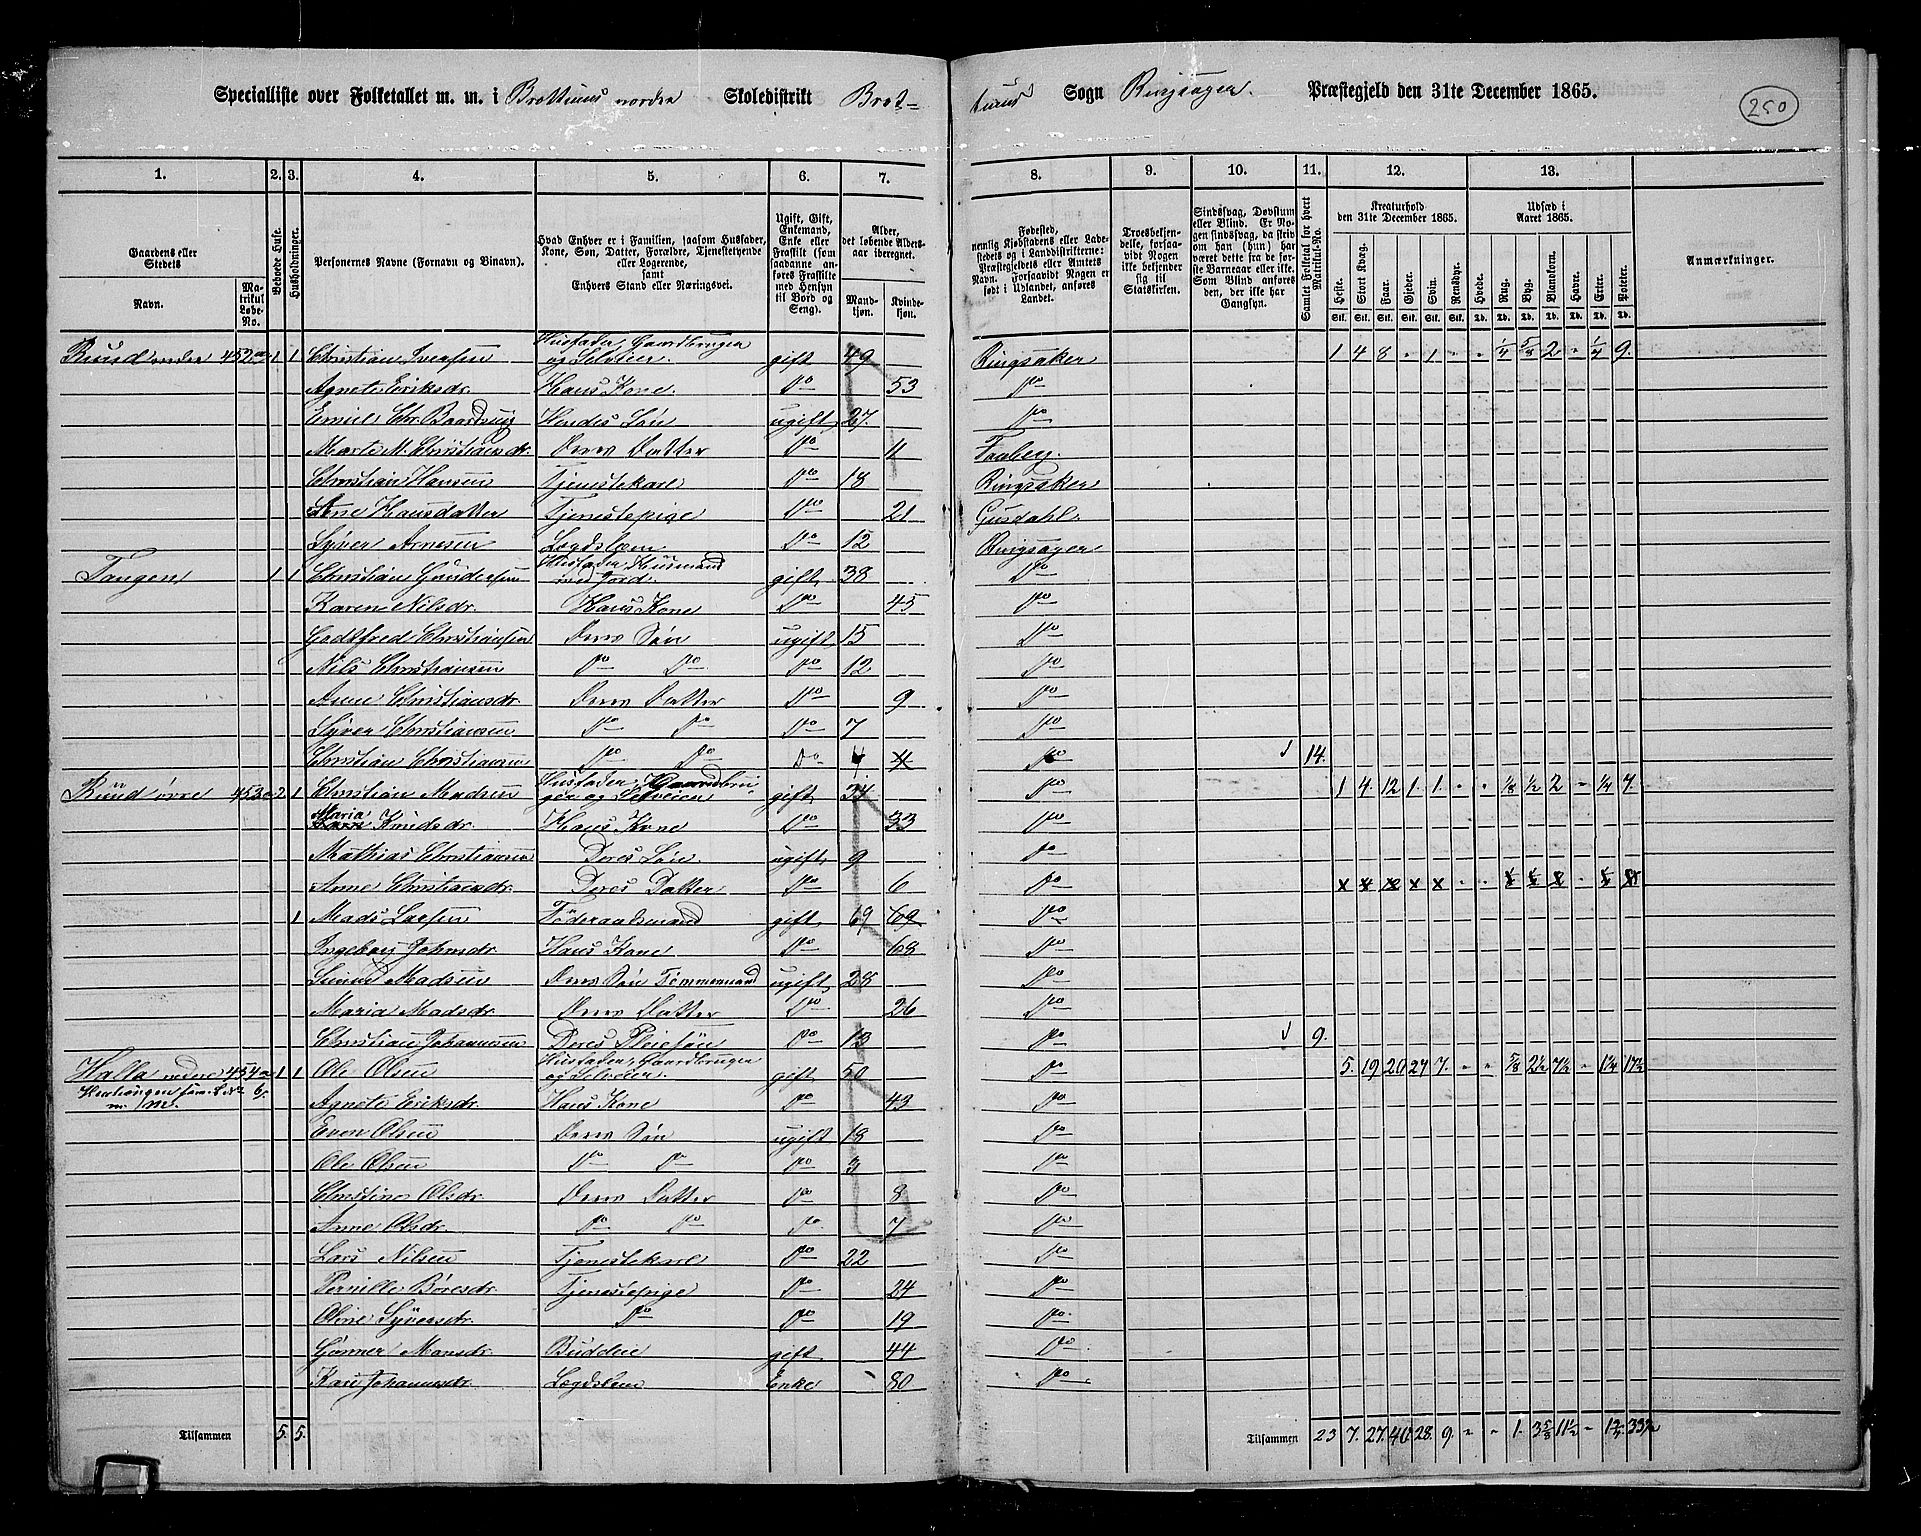 Specialliste over Folketallet m. m. i Brøttums nordre Skoledistrikt Brøt-
tums Sogn Ringsager Præstegjeld den 31te December 1865.
250
1. 2. 3. 4. 5. 6. 7. 8. 9. 10. 11. 12. 13.
Gaardens eller Stedets
Navn.
Matrikul Løbe-No.
Beboede Huse.
Husholdninger.
Personernes Navne (Fornavn og Binavn).
Hvad Enhver er i Familien, saasom Husfader, Kone, Søn, Datter, Forældre, Tjenestetyende eller Logerende,
samt
Enhvers Stand eller Næringsvei.
Ugift, Gift, Enkemand, Enke eller Fraskilt (som saadanne anføres Fraskilte med Hensyn til Bord og Seng).
Alder, det løbende Alders-aar iberegnet.
Mandkjøn. Kvindekjøn.
Fødested, nemlig Kjøbstadens eller Ladestedets og i Landdistrikterne: Præstegjeldets eller Annexets Navn. Forsaavidt Nogen er født i Udlandet, anføres Landet.
Troesbekjendelse, forsaavidt Nogen ikke bekjender sig til Statskirken.
Sindssvag, Døvstum eller Blind. Er Nogen sindssvag, da skriv om han (hun) har været dette fra de første Barneaar eller ikke. Som Blind anføres den, der ikke har Gangsyn.
Samlet Folketal for hvert Matrikul-No.
Kreaturhold den 31te December 1865.
Heste. Stort Kvæg. Faar. Gjeder. Svin. Rensdyr.
Udsæd i Aaret 1865.
Hvede. Rug. Byg. Blandkorn. Havre. Erter. Poteter.
Anmærkninger.
Husfader, Gaardbruger
Ruud nedre 452a 1 1 Christian Iversen og Selveier gift 49 Ringsaker 1 4 8 - 1 - - 1/4 5/8 2 - 1/4 9.
Agnete Eriksdr. Hans Kone do 53 do
Emiel Chr. Baardrug Hendes Søn ugift 27. do
Marte M. Christiansdr. Deres Datter do 11 Faaberg
Christian Hansen Tjenestekarl do 18 Ringsaker
Ane Hansdatter Tjenestepige do 21 Gusdahl
Syver Arnesen Lægdslem do 12 Ringsager
Husfader, Husmand
Tangen 1 1 Christian Gundersen med Jord. gift 38 do
Karen Nilsdr. Hans Kone do 45 do
Godtfred Christiansen Deres Søn ugift 15 do
Nils Christiansen do do do 12 do
Anne Christiansdr. Deres Datter do 9 do
Syver Christiansen do do do 7 do
Christian Christiansen do do do 4 4 do 14.
Husfader, Gaardbru-
Ruud øvre 453a 2 1 Christian Madsen ger og Selveier gift 34 do 1 4. 12 1. 1. - - 1/8 1/2 2 - 1/4 7.
Maria
Knudsdr. Hans Kone do 33 do
Mathias Christiansen Deres Søn ugift 9 do
Anne Christiansdr. Deres Datter do 6 do
1 Mads Larsen Føderaadsmand gift 69 69 do
Ingeborg Johnsdr. Hans Kone do 68 do
Madsen Deres Søn Tømmermand ugift 28 do
Maria Madsdr. Deres Datter do 26 do
Christian Johannesen Deres Pleiesøn do 13 do 9.
Husfader, Gaardbruger
Kalla nedre 454a 1 1 Ole Olsen og Selveier. gift 50 do 5. 19 20 27 7. - - 5/8 2 1/2 7 1/2 - 1 1/4 17 1/2
Agnete Eriksdr. Hans Kone do 43 do
Even Olsen Deres Søn ugift 18 do
Ole Olsen do do do 3 do
Christine Olsdr. Deres Datter do 8 do
Anne Olsdr. do do do 7 do
Lars Nilsen Tjenestekarl do 22 do
Pernille Boresdr. Tjenestepige do 24 do
Oline Syversdr. do do 19 do
Gunner Monsdr. Buddeie gift 44 do
Kari Johannesdr. Lægdslem Enke 80 do
Tilsammen 5. 5. Tilsammen 23 7. 27. 40 28. 9. - - 1. 3 5/8 11 1/2 - 1 3/4 33 1/2